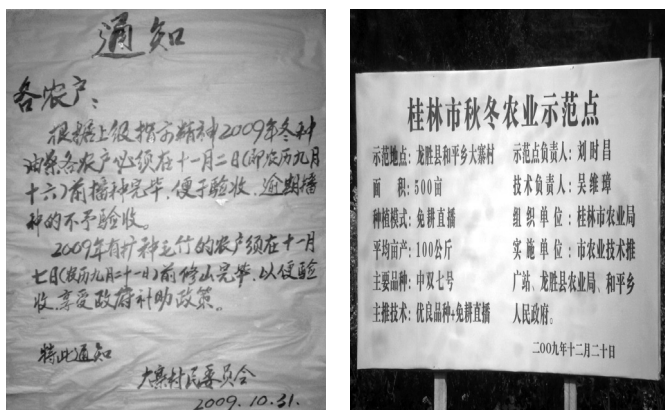 通知
各农户：
根据上级指示精神2009年冬种
油菜各农户必须在十一月二日(即农历九月
十六)前播种完毕，便于验收，逾期播
种的不予验收。
2009年有扩种毛竹的农户须在十一月
七日(农历九月二十一日)前修山完毕，以便验
收，享受政府补助政策。
特此通知
大寨村民委员会
2009.10.31.
桂林市秋冬农业示范点
示范地点：龙胜县和平乡大寨村
面 积：500亩
种植模式：免耕直播
平均亩产：100公斤
主要品种：中双七号
主推技术：优良品种+免耕直播
示范点负责人：刘时昌
技术负责人：吴维璋
组织单位：桂林市农业局
实施单位：市农业技术推
广站、龙胜县农业局、和平乡
人民政府。
二00九年十二月二十日